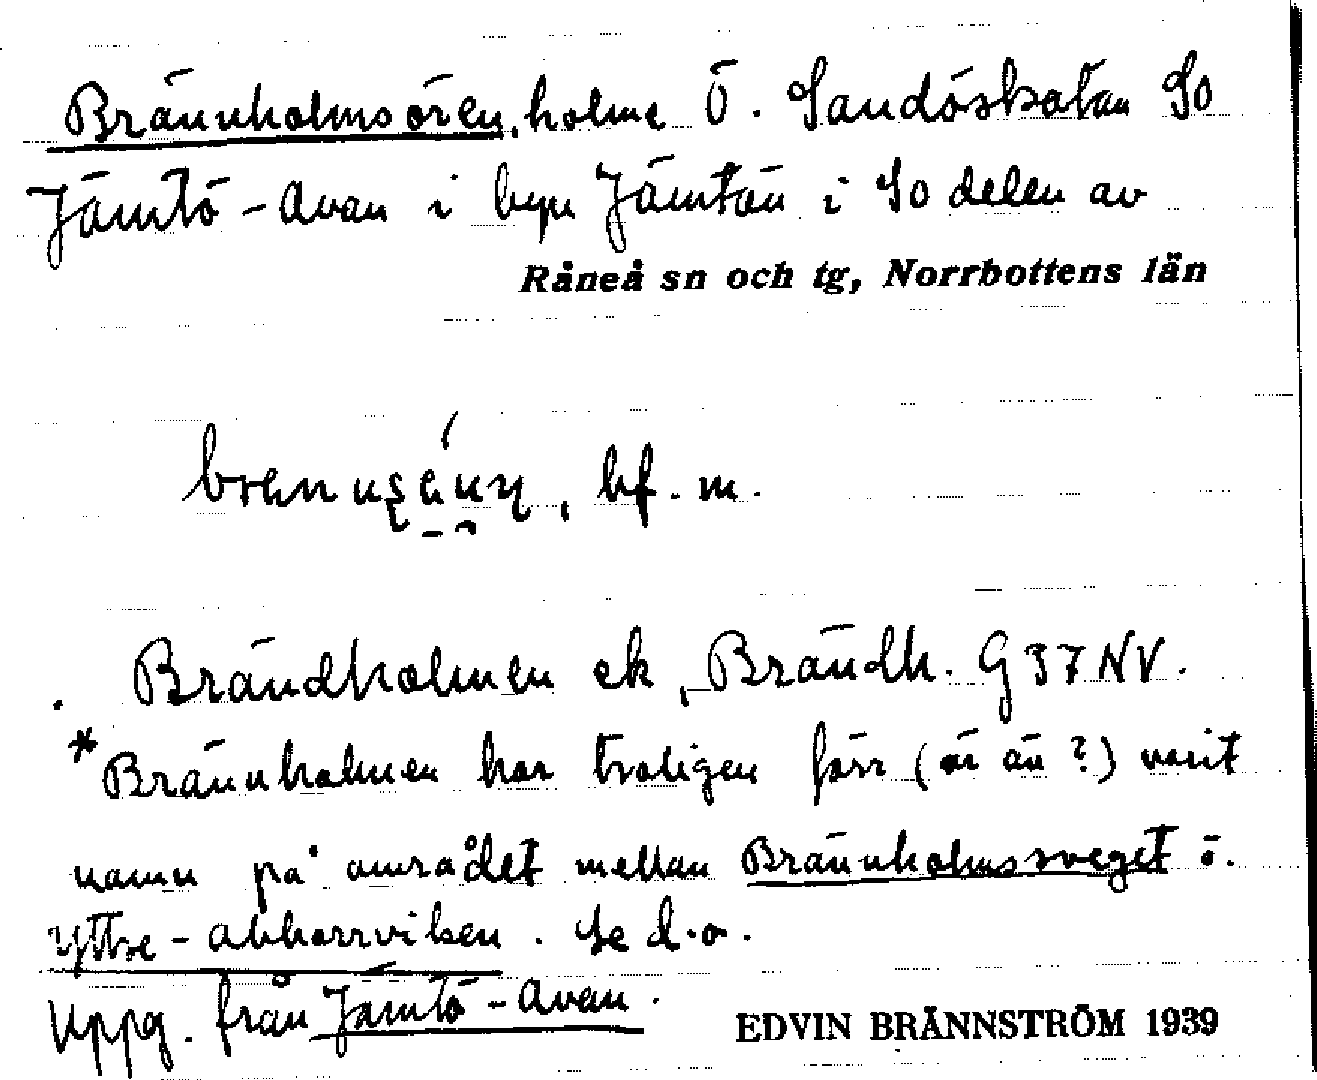 Brännholmsören, holme Ö. Sandöskatan So
Jämtö-Avan i byn Jämtön i So delen av
Råneå sn och tg, Norrbottens län
bf. m.
Brändholmen ek, Brändh. G 37 NV.
* Brännholmen har troligen förr (än ?) varit
namn på området mellan Brännholmssveget ö.
Yttre-abborrviken. Se d.o.
Uppg. från Jämtö-Avan.
EDVIN BRÄNNSTRÖM 1939